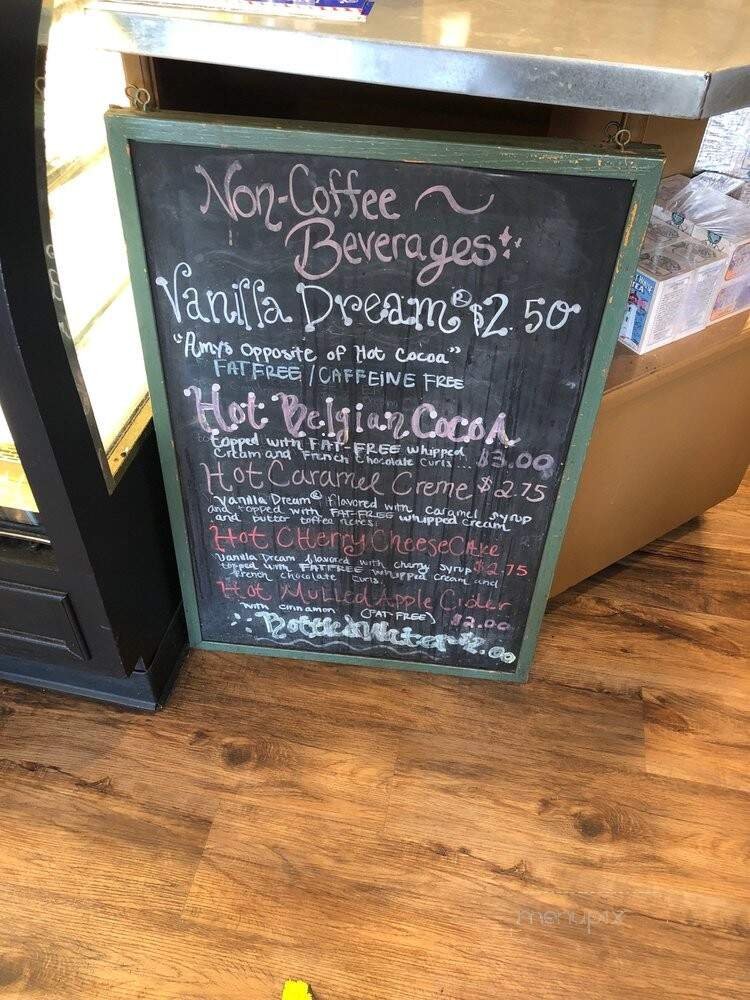 Non-Coffee ~
Beverages
Vanilla Dream® $2.50
"Amys opposite of Hot Cocoa"
FAT FREE / CAFFEINE FREE
Hot Belgian Cocoa
topped with FAT-FREE whipped
Cream and French Chocolate Curls... $3.00
Hot Caramel Creme $2.75
Vanilla Dream® flavored with caramel syrup
and topped with FAT-FREE whipped cream
and butter toffee
Hot CHerry CheeseCAke
Vanilla Dream flavored with cherry syrup $2.75
topped with FAT FREE whipped cream and
French chocolate curls.
Hot Mulled Apple Cider
with cinnamon (FAT-FREE) $2.00
Bottled Water $2.00
TEA
menupix